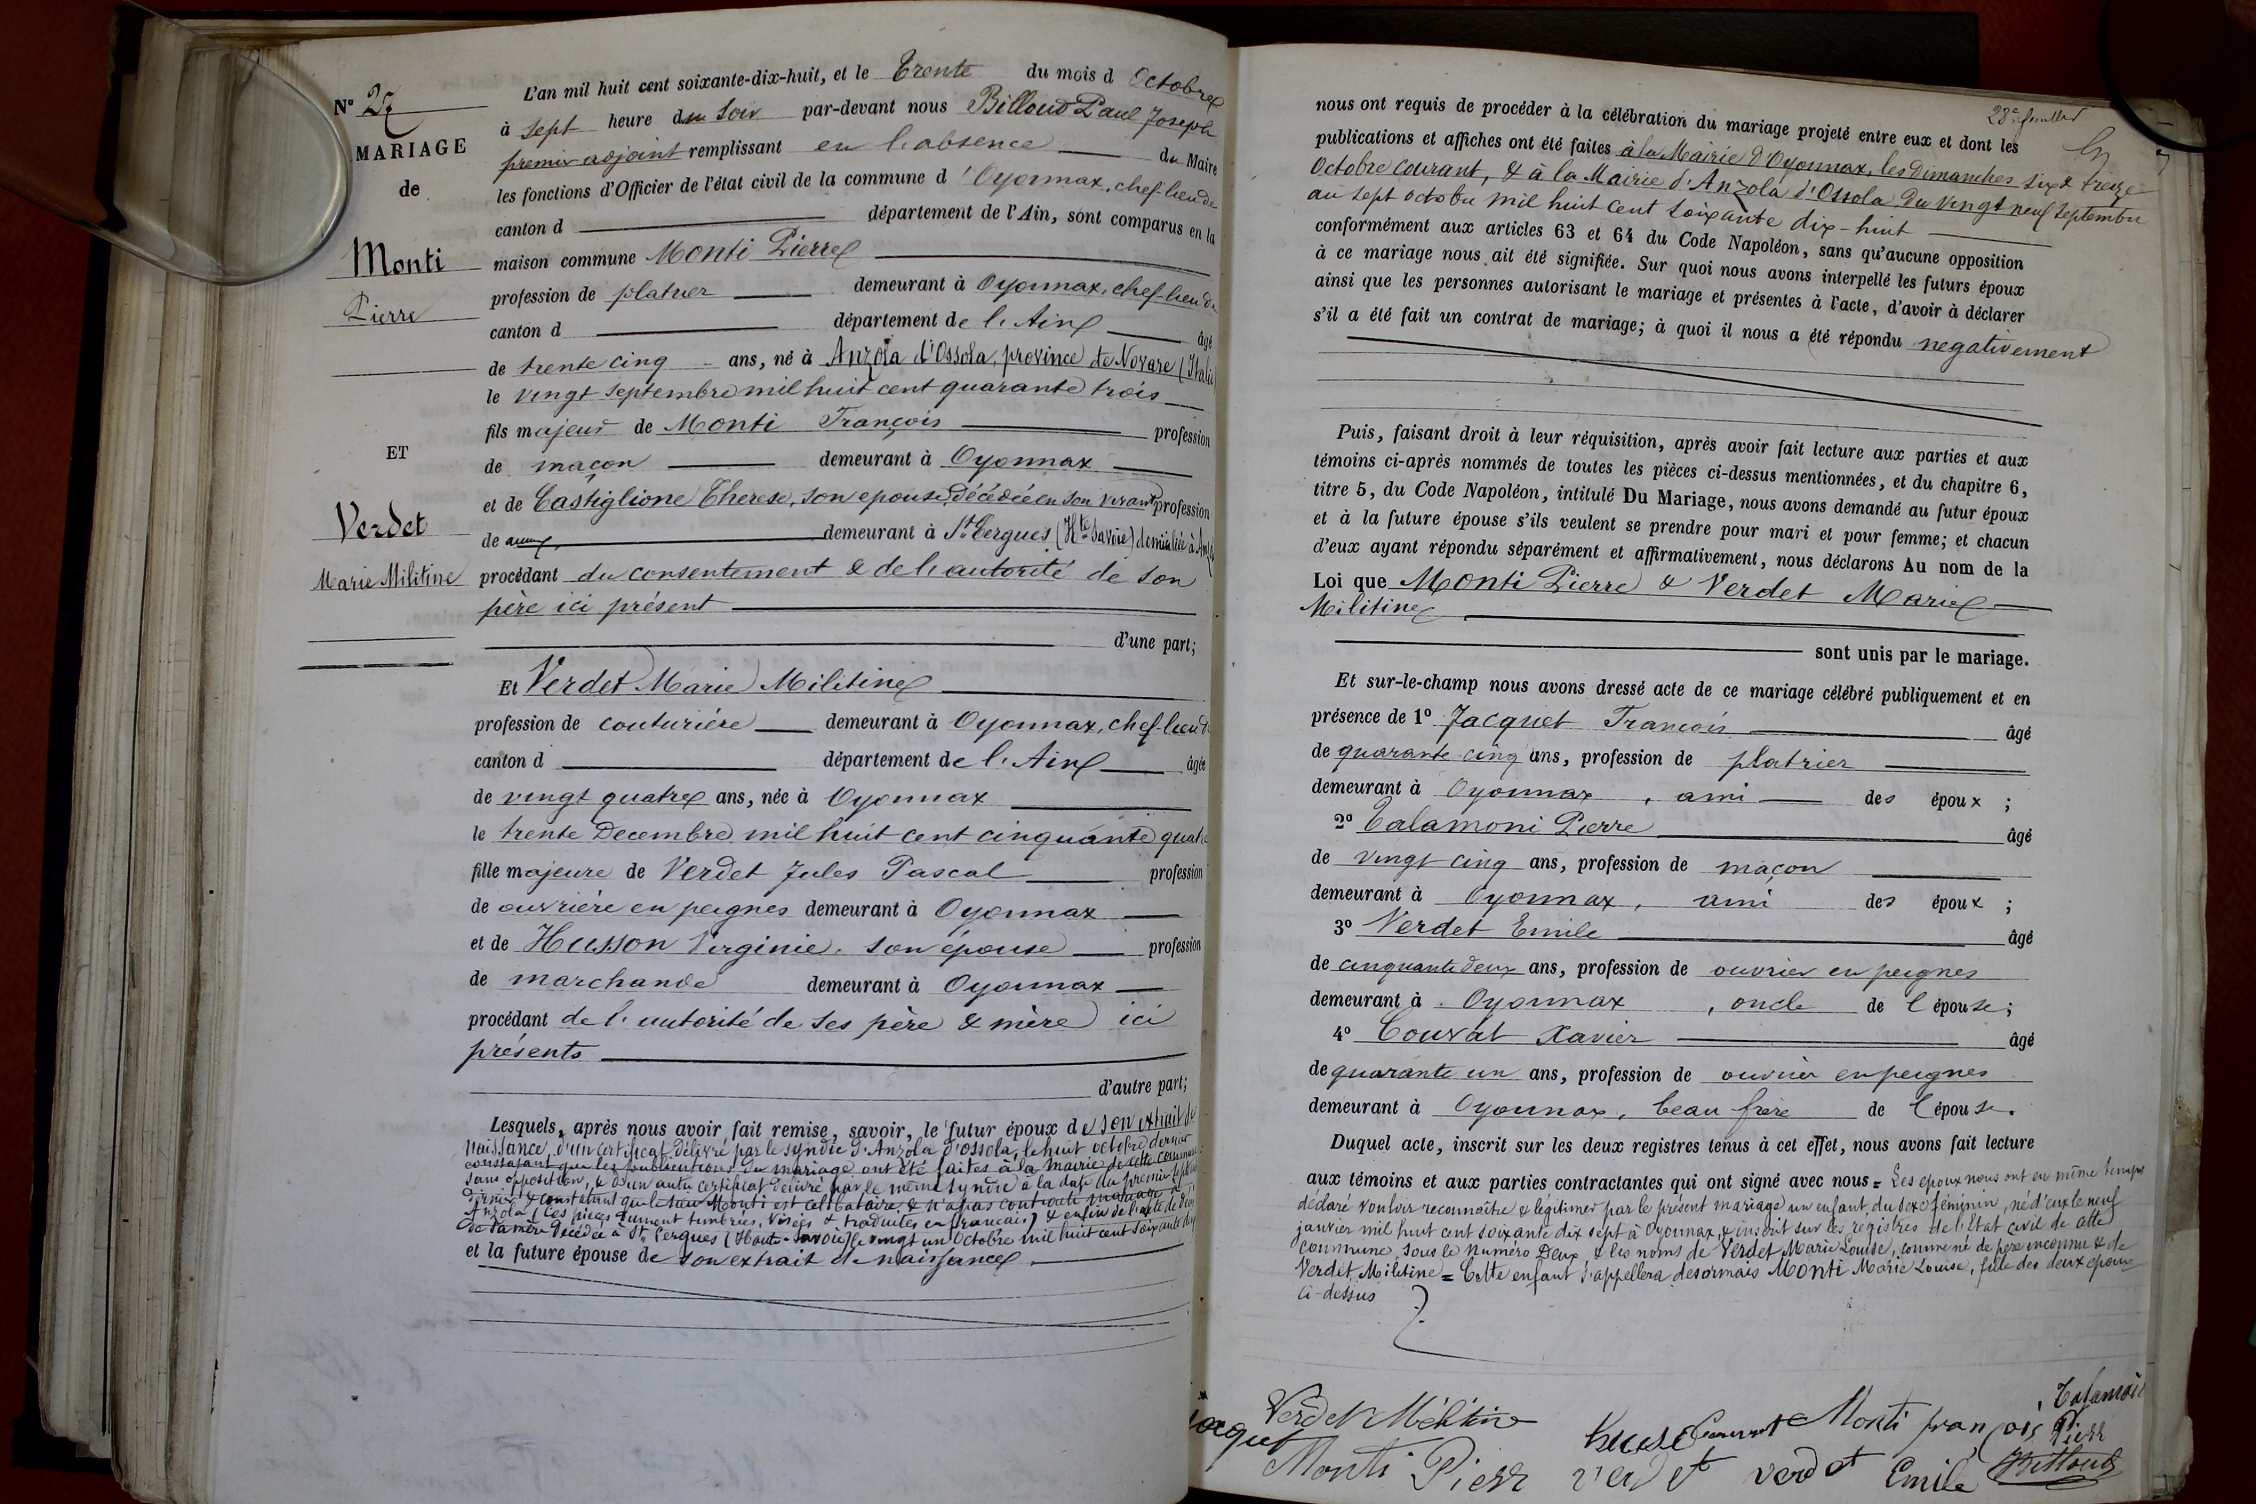 L'an mil huit cent soixante-dix-huit, et le Trente du mois d Octobre
Nº 27
à sept heure du soir par-devant nous Billoud Paul Joseph
MARIAGE
premier adjoint remplissant en l'absence du Maire
de
les fonctions d'Officier de l'état civil de la commune d'Oyonnax, chef-lieu de
canton d département de l'Ain, sont comparus en la
Monti
maison commune Monti Pierre
Pierre
profession de platrier demeurant à Oyonnax, chef-lieu de
canton d département de l'Ain âgé
de trente cinq ans, né à Anzola d'Ossola, province de Novare (Italie
le vingt septembre mil huit cent quarante trois
fils majeur de Monti François profession
ET
de maçon demeurant à Oyonnax
et de Castiglione Therese, son epouse, décédée en son vivant profession
Verdet
de demeurant à St Cergues (Hte Savoie) domiciliée à
Marie Militine
procédant du consentement & de l'autorité de son
père ici présent
d'une part;
Et Verdet Marie Militine
profession de couturière demeurant à Oyonnax, chef-lieu de
canton d département de l'Ain âgée
de vingt quatre ans, née à Oyonnax
le trente Decembre mil huit cent cinquante quatre
fille majeure de Verdet Jules Pascal profession
de ouvrière en peignes demeurant à Oyonnax
et de Husson Virginie, son épouse profession
de marchande demeurant à Oyonnax
procédant de l'autorité de ses père & mère ici
présents
d'autre part;
Lesquels, après nous avoir fait remise, savoir, le futur époux de son extrait de
Naissance, d'un certificat délivré par le syndic d'Anzola d'Ossola, le huit octobre dernier
constatant que les publications du mariage ont été faites à la Mairie de cette commune
sans opposition, & d'un autre certificat délivré par le même syndic à la date du premier septembre
dernier & constatant que le sieur Monti est célibataire, & n'a pas contracté mariage à
Anzola (ces pièces dument timbrées, visées & traduites en français) & enfin de l'acte de décès
de sa mère décédée à St Cergues (Haute-Savoie) le vingt un Octobre mil huit cent soixante dix
et la future épouse de son extrait de naissance
28e feuillet
nous ont requis de procéder à la célébration du mariage projeté entre eux et dont les
publications et affiches ont été faites à la Mairie d'Oyonnax, les Dimanches six & treize
Octobre courant, & à la Mairie d'Anzola d'Ossola du vingt neuf septembre
au sept octobre mil huit cent soixante dix-huit
conformément aux articles 63 et 64 du Code Napoléon, sans qu'aucune opposition
à ce mariage nous ait été signifiée. Sur quoi nous avons interpellé les futurs époux
ainsi que les personnes autorisant le mariage et présentes à l'acte, d'avoir à déclarer
s'il a été fait un contrat de mariage; à quoi il nous a été répondu negativement
Puis, faisant droit à leur réquisition, après avoir fait lecture aux parties et aux
témoins ci-après nommés de toutes les pièces ci-dessus mentionnées, et du chapitre 6,
titre 5, du Code Napoléon, intitulé Du Mariage, nous avons demandé au futur époux
et à la future épouse s'ils veulent se prendre pour mari et pour femme; et chacun
d'eux ayant répondu séparément et affirmativement, nous déclarons Au nom de la
Loi que Monti Pierre & Verdet Marie
Militine
sont unis par le mariage.
Et sur-le-champ nous avons dressé acte de ce mariage célébré publiquement et en
présence de 1º Jacquet François âgé
de quarante cinq ans, profession de platrier
demeurant à Oyonnax, ami des époux;
2º Talamoni Pierre âgé
de vingt cinq ans, profession de maçon
demeurant à Oyonnax, ami des époux;
3º Verdet Emile âgé
de cinquante deux ans, profession de ouvrier en peignes
demeurant à Oyonnax, oncle de l'épouse;
4º Couvat Xavier âgé
de quarante un ans, profession de ouvrier en peignes
demeurant à Oyonnax, beau frère de l'épouse.
Duquel acte, inscrit sur les deux registres tenus à cet effet, nous avons fait lecture
aux témoins et aux parties contractantes qui ont signé avec nous = Les epoux nous ont en même temps
déclaré vouloir reconnaitre & légitimer par le présent mariage un enfant, du sexe féminin, né d'eux le neuf
janvier mil huit cent soixante dix sept à Oyonnax, & inscrit sur les registres de l'Etat civil de cette
commune, sous le numéro Deux & les noms de Verdet Marie Louise, comme né de père inconnu & de
Verdet Militine = Cette enfant s'appellera désormais Monti Marie Louise, fille des deux époux
ci-dessus
Verdet Mélitine
Jacquet
Monti Pierr
Couvat
Monti françois
Talamoni
Pierr
verdet verdet Emile
Billoud